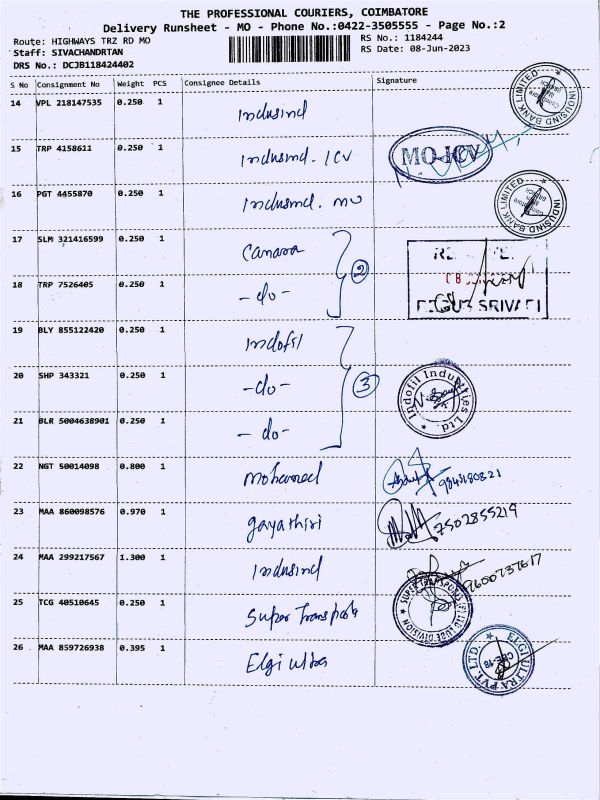 THE PROFESSIONAL COURIERS, COIMBATORE
Delivery Runsheet - MO - Phone No.:0422-3505555 - Page No.:2
Route: HIGHWAYS TRZ RD MO RS No.: 1184244
Staff: SIVACHANDRTAN RS Date: 08-Jun-2023
DRS No.: DCJB118424402
S No Consignment No Weight PCS Consignee Details Signature
14 VPL 218147535 0.250 1 Indusind
INDUSIND BANK LIMITED
15 TRP 4158611 0.250 1 Indusind. ICV
MO-ICV
16 PGT 4455870 0.250 1 Indusind. MO
INDUSIND BANK LIMITED
17 SLM 321416599 0.250 1 Canara
2
18 TRP 7526405 0.250 1 -do-
19 BLY 855122420 0.250 1 Indofil
20 SHP 343321 0.250 1 -do-
3
Indofil Industries Ltd.
21 BLR 5004638901 0.250 1 -do-
22 NGT 50014098 0.800 1 Mohamed
9843180821
23 MAA 860098576 0.970 1 gayathiri
7502855219
24 MAA 299217567 1.300 1 Indusind
25 TCG 40510645 0.250 1 Super Transports
26 MAA 859726938 0.395 1 Elgi ultra
ELGI ULTRA PVT. LTD.
CBE-18